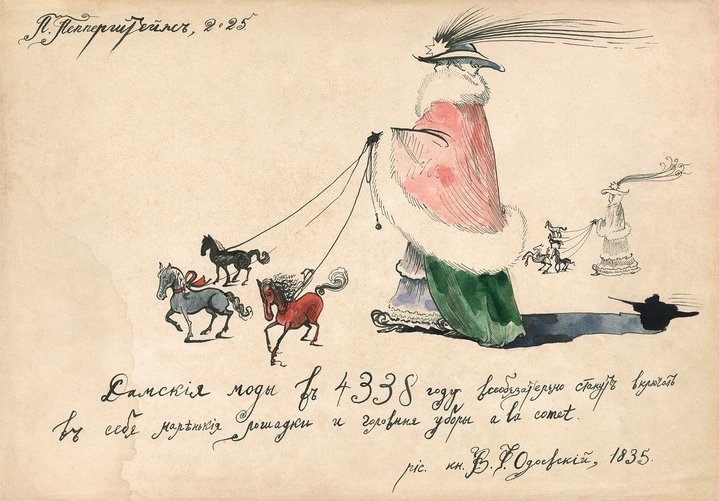 П. Пепперштейнъ, 2025.
Дамскія моды въ 4338 году всеобязательно станутъ включать
въ себе маленькія лошадки и головныя уборы a la comet.
ріс. кн. В. Ф. Одоевскій, 1835.